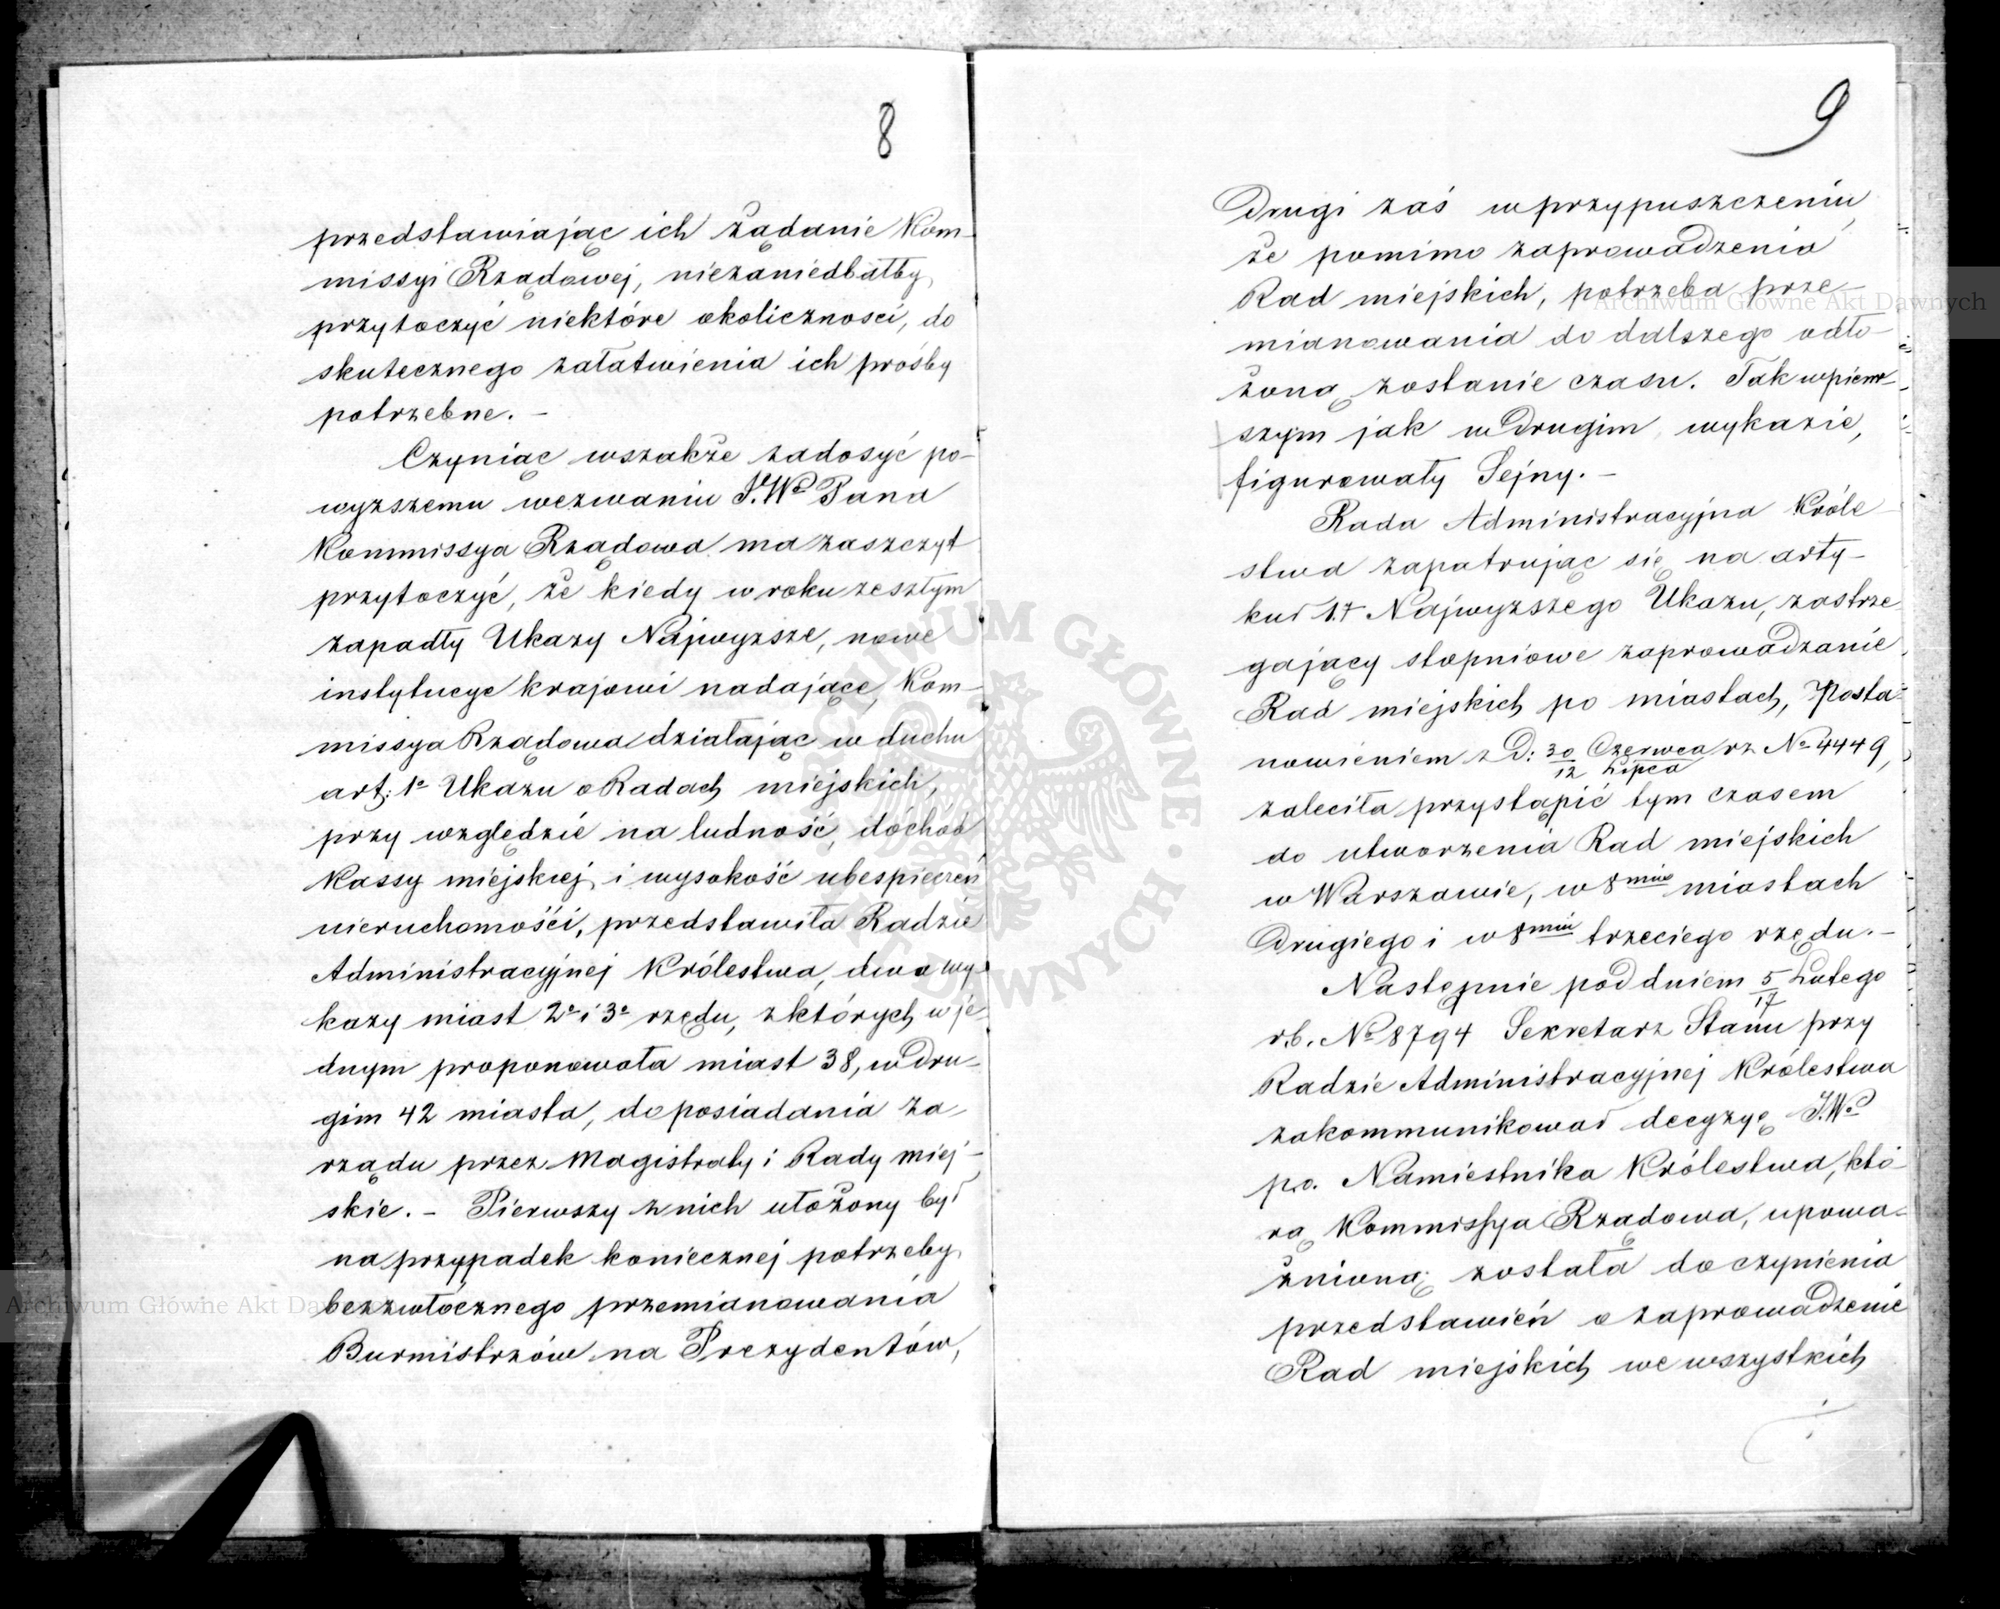 8
przedstawiając ich żądanie Kom-
missyi Rządowej, niezaniedbałby
przytoczyć niektóre okoliczności, do
skutecznego załatwienia ich prośby
potrzebne. -
Czyniąc wszakże zadosyć po-
wyższemu wezwaniu J.Wo Pana
Kommissya Rządowa ma zaszczyt
przytoczyć, że kiedy w roku zeszłym
zapadły Ukazy Najwyższe, nowe
instytucye krajowi nadające, Kom-
missya Rządowa działając w duchu
art: 1o Ukazu o Radach miejskich,
przy względzie na ludność, dochód
Kassy miejskiej i wysokość ubespieczeń
nieruchomości, przedstawiła Radzie
Administracyjnej Królestwa, dwa wy-
kazy miast 2o i 3o rzędu, z których w je-
dnym proponowała miast 38, w dru-
gim 42 miasta, do posiadania Za-
rządu przez Magistraty i Rady miej-
skie. - Pierwszy z nich ułożony był
na przypadek koniecznej potrzeby
bezzwłócznego przemianowania
Burmistrzów na Prezydentów,
9
Drugi zaś w przypuszczeniu,
że pomimo zaprowadzenia
Rad miejskich, potrzeba prze-
mianowania do dalszego odło-
żoną zostanie czasu. Tak w pierw-
szym jak w drugim wykazie,
figurowały Sejny. -
Rada Administracyjna Króle-
stwa zapatrując się na arty-
kuł 1.t Najwyższego Ukazu, zastrze-
gający stopniowe zaprowadzanie
Rad miejskich po miastach, Posta-
nowieniem z D: 30 Czerwca/12 Lipca rz No 4449,
zaleciła przystąpić tym czasem
do utworzenia Rad miejskich
w Warszawie, w 8miu miastach
Drugiego i w 8miu trzeciego rzędu. -
Następnie pod dniem 5/17 Lutego
r.b. No 8794 Sekretarz Stanu przy
Radzie Administracyjnej Królestwa
zakommunikował decyzyę J.Wo
p.o. Namiestnika Królestwa, któ-
rą Kommissya Rządowa, upowa-
żnioną została do czynienia
przedstawień o zaprowadzenie
Rad miejskich we wszystkich
Archiwum Główne Akt Dawnych
Archiwum Główne Akt Dawnych
ARCHIWUM GŁÓWNE AKT DAWNYCH